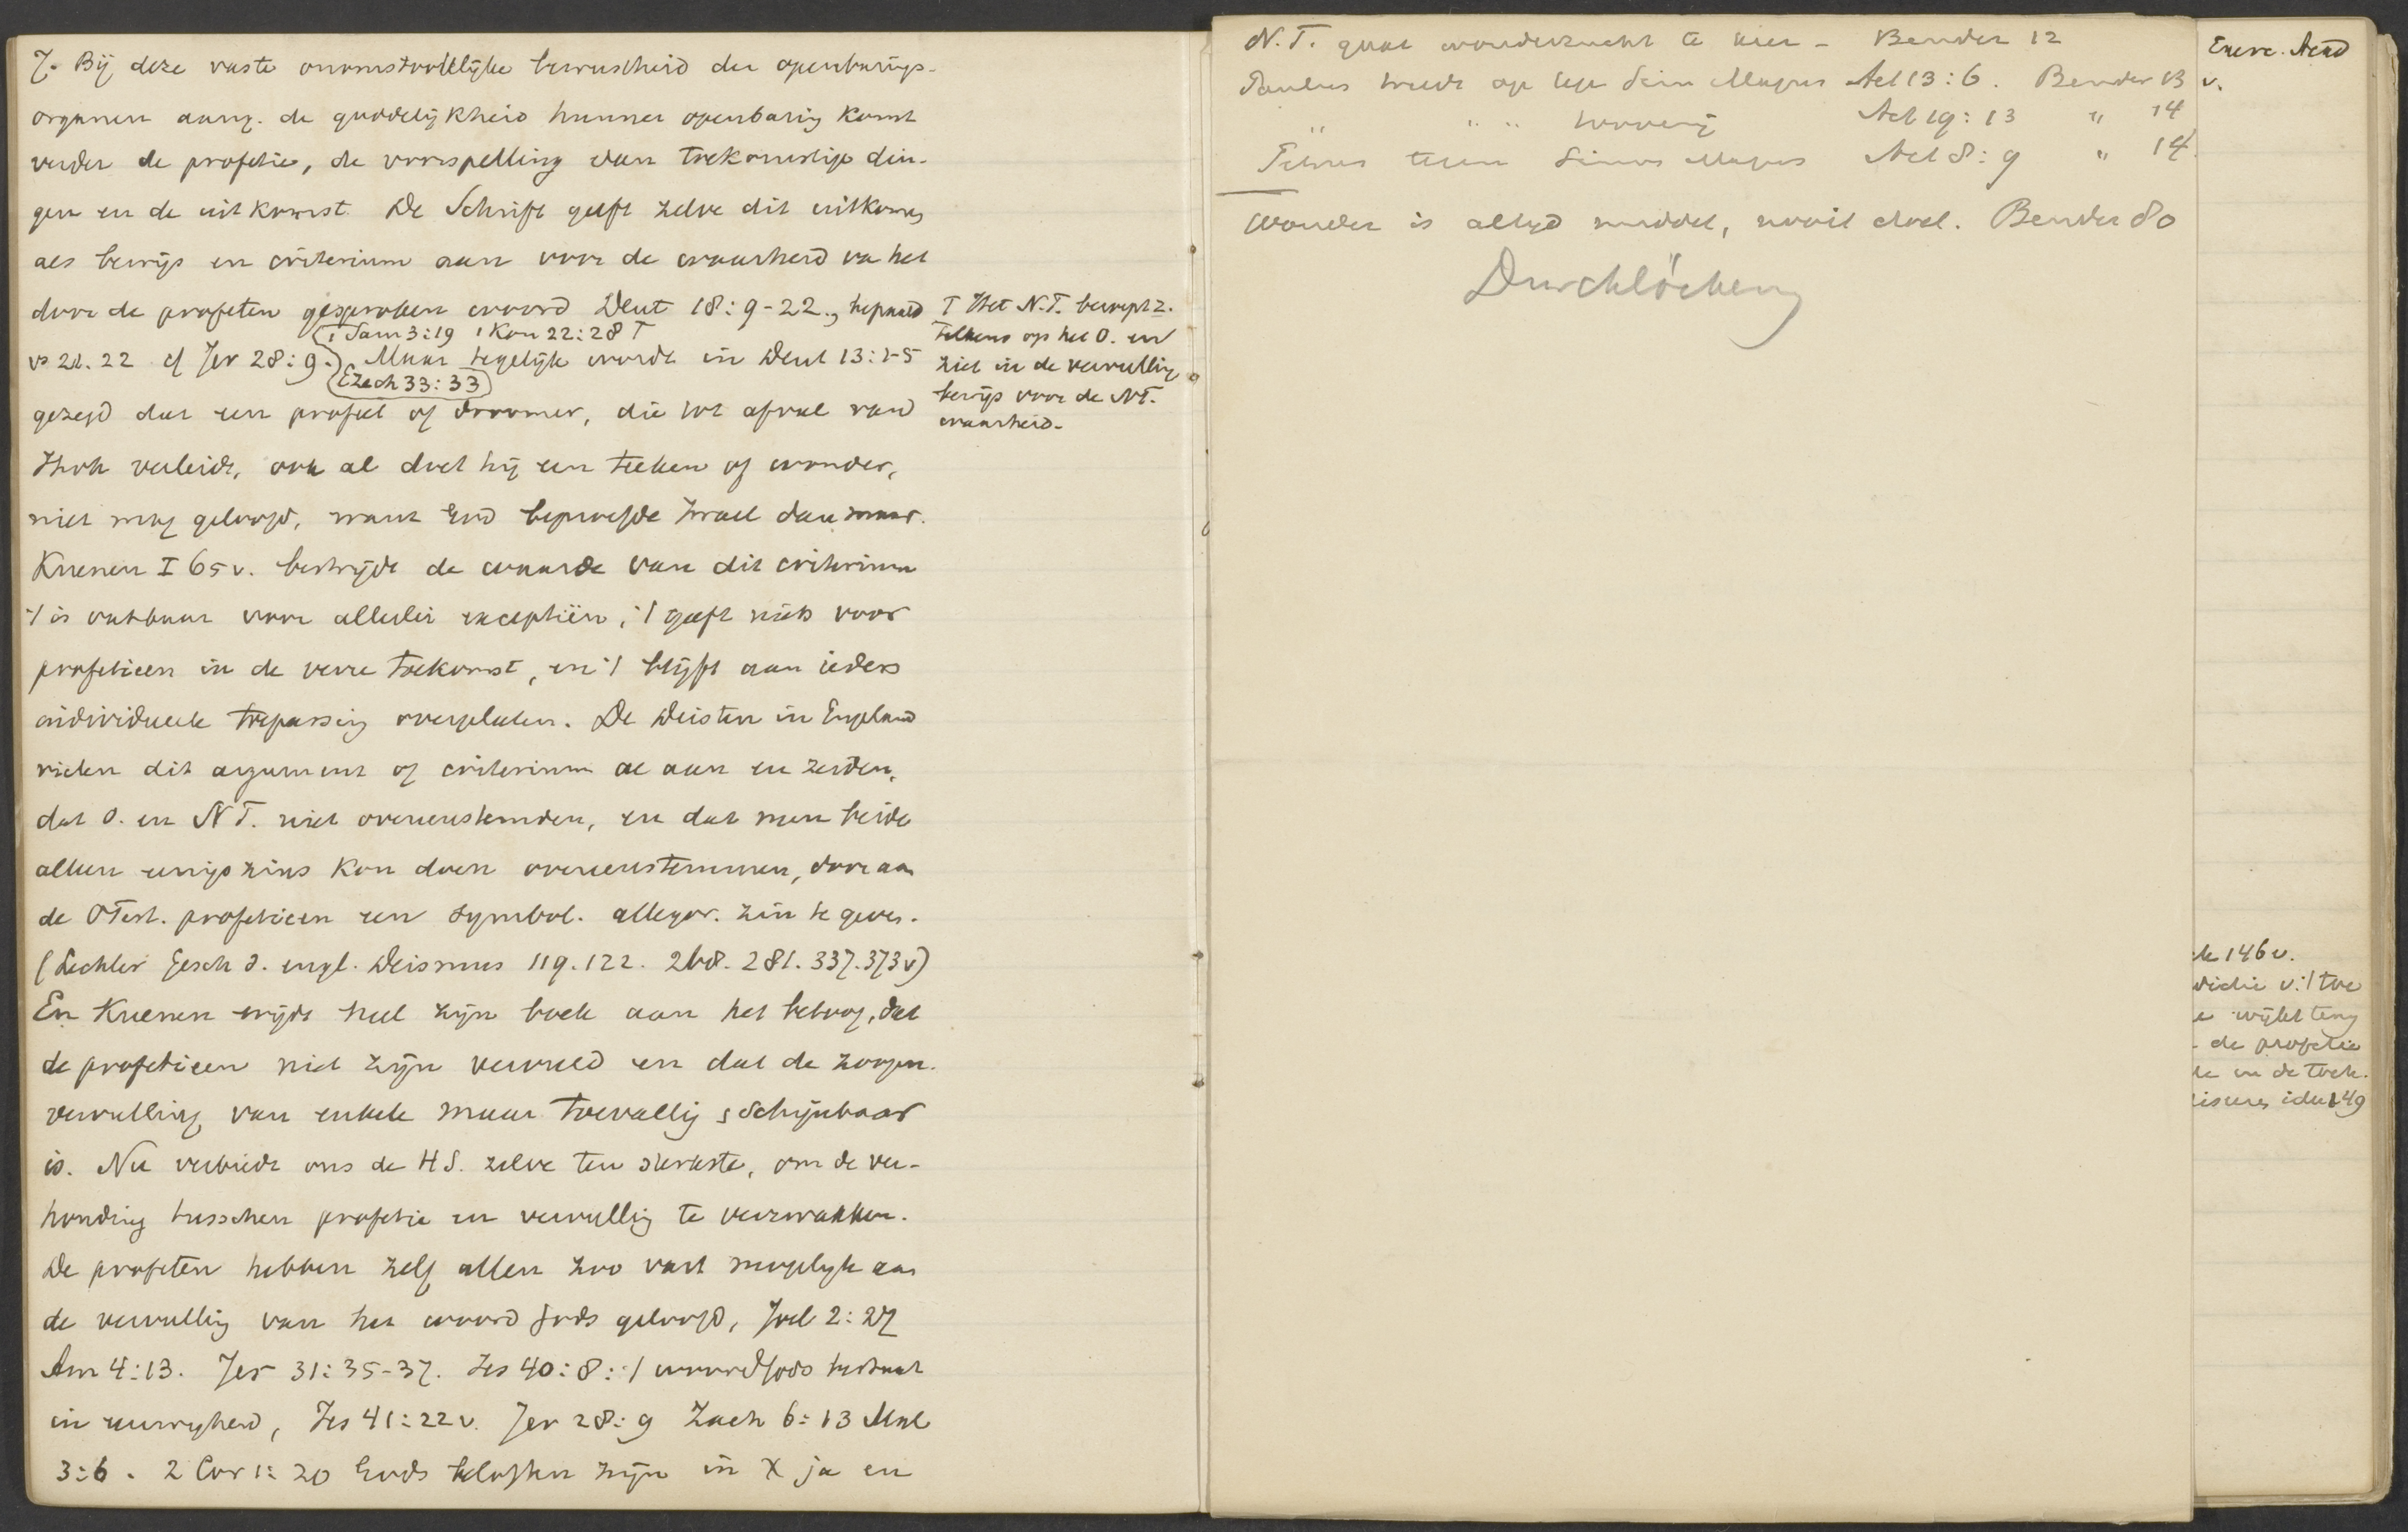 7. Bij deze vaste onomstootelijke bewustheid der openbarings-
organen aang. de goddelijkheid hunner openbaring komt
verder de profetie, de voorspelling van toekomstige din-
gen en de uitkomst. De Schrift geeft zelve dit uitkomen
als bewijs en criterium aan voor de waarheid va het
door de profeten gesproken woord Deut 18:9-22., bepaald
1 Sam 3:19 1 Kon 22:28 T
vs 21.22 cf Jer 28:9. Maar tegelijk wordt in Deut 13:1-5
Ezech 33:33
gezegd dat een profeet of droomer, die tot afval van
Jhvh verleidt, ook al doet hij een teeken of wonder,
niet mag geloofd, want God beproefde Israel dan maar.
Kuenen I 65v. bestrijdt de waarde van dit criterium
't is vatbaar voor allerlei exceptiën, 't geeft niets voor
profetieen in de verre toekomst, en 't blijft aan ieders
individueele toepassing overgelaten. De Deisten in Engeland
vielen dit argument of criterium al aan en zeiden,
dat O. en NT. niet overeenstemden, en dat men beide
alleen eenigszins kon doen overeenstemmen, door aan
de OTest. profetieen een symbol. allegor. zin te geven.
(Lechler Gesch d. engl. Deismus 119.122. 268. 281. 337.373v)
En Kuenen wijdt heel zijn boek aan het betoog, dat
de profetieen niet zijn vervuld en dat de zoogen.
vervulling van enkele maar toevallig, schijnbaar
is. Nu verbiedt ons de HS. zelve ten sterkste, om de ver-
houding tusschen profetie en vervulling te verzwakken.
De profeten hebben zelf allen zoo vast mogelijk aan
de vervulling van het woord Gods geloofd, Joel 2:27
Am 4:13. Jer 31:35-37. Jes 40:8: 't woord Gods bestaat
in eeuwigheid, Jes 41:22v. Jer 28:9 Zach 6:13 Mal
3:6. 2 Cor 1:20 Gods beloften zijn in X ja en
T Het N.T. beroept z.
telkens op het O. en
ziet in de vervulling
bewijs voor de NT.
waarheid.
N.T. gaat wonderzucht te keer - Bender 12
Paulus treedt op tegen Magus Act 13:6. Bender 13
" " " Act 19:13 " 14
Petrus tegen Simon Magus Act 8:9 " 14.
Wonder is altijd middel, nooit doel. Bender 80
Durchlöcherung
v.
146v.
't toe
wijkt
de profetie
in de toek.
149